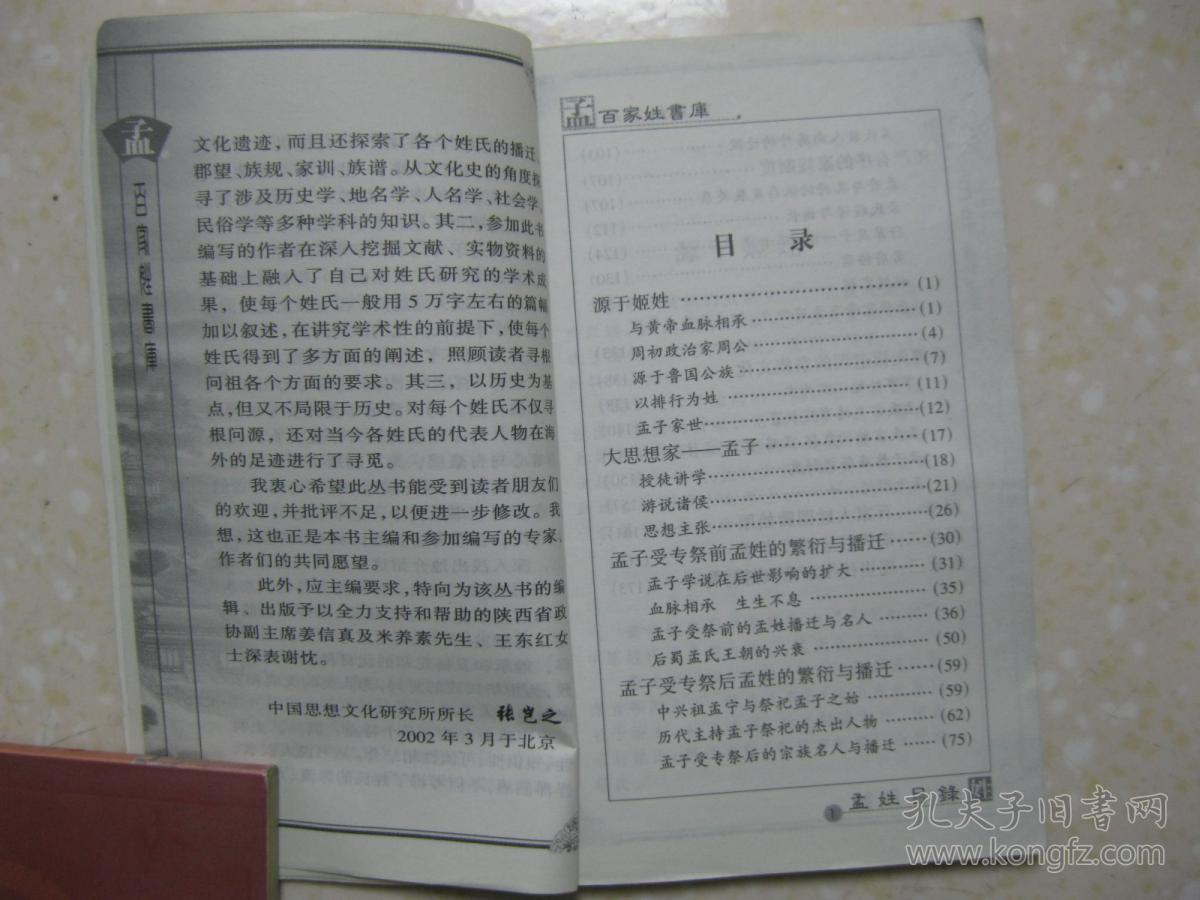 孟
百家姓書庫
文化遗迹，而且还探索了各个姓氏的播迁、
郡望、族规、家训、族谱。从文化史的角度探
寻了涉及历史学、地名学、人名学、社会学、
民俗学等多种学科的知识。其二，参加此书
编写的作者在深入挖掘文献、实物资料的
基础上融入了自己对姓氏研究的学术成
果，使每个姓氏一般用5万字左右的篇幅
加以叙述，在讲究学术性的前提下，使每个
姓氏得到了多方面的阐述，照顾读者寻根
问祖各个方面的要求。其三，以历史为基
点，但又不局限于历史。对每个姓氏不仅寻
根问源，还对当今各姓氏的代表人物在海
外的足迹进行了寻觅。
我衷心希望此丛书能受到读者朋友们
的欢迎，并批评不足，以便进一步修改。我
想，这也正是本书主编和参加编写的专家、
作者们的共同愿望。
此外，应主编要求，特向为该丛书的编
辑、出版予以全力支持和帮助的陕西省政
协副主席姜信真及米养素先生、王东红女
士深表谢忱。
中国思想文化研究所所长 张岂之
2002年3月于北京
孟 百家姓書庫
目 录
源于姬姓 ……………………………(1)
与黄帝血脉相承……………………(1)
周初政治家周公……………………(4)
源于鲁国公族………………………(7)
以排行为姓 ………………………(11)
孟子家世……………………………(12)
大思想家——孟子…………………(17)
授徒讲学……………………………(18)
游说诸侯……………………………(21)
思想主张……………………………(26)
孟子受专祭前孟姓的繁衍与播迁……(30)
孟子学说在后世影响的扩大 ………(31)
血脉相承 生生不息 ………………(35)
孟子受祭前的孟姓播迁与名人 ……(36)
后蜀孟氏王朝的兴衰………………(50)
孟子受专祭后孟姓的繁衍与播迁……(59)
中兴祖孟宁与祭祀孟子之始………(59)
历代主持孟子祭祀的杰出人物 ……(62)
孟子受专祭后的宗族名人与播迁 ……(75)
1 孟姓目録
孔夫子旧书网
www.kongfz.com